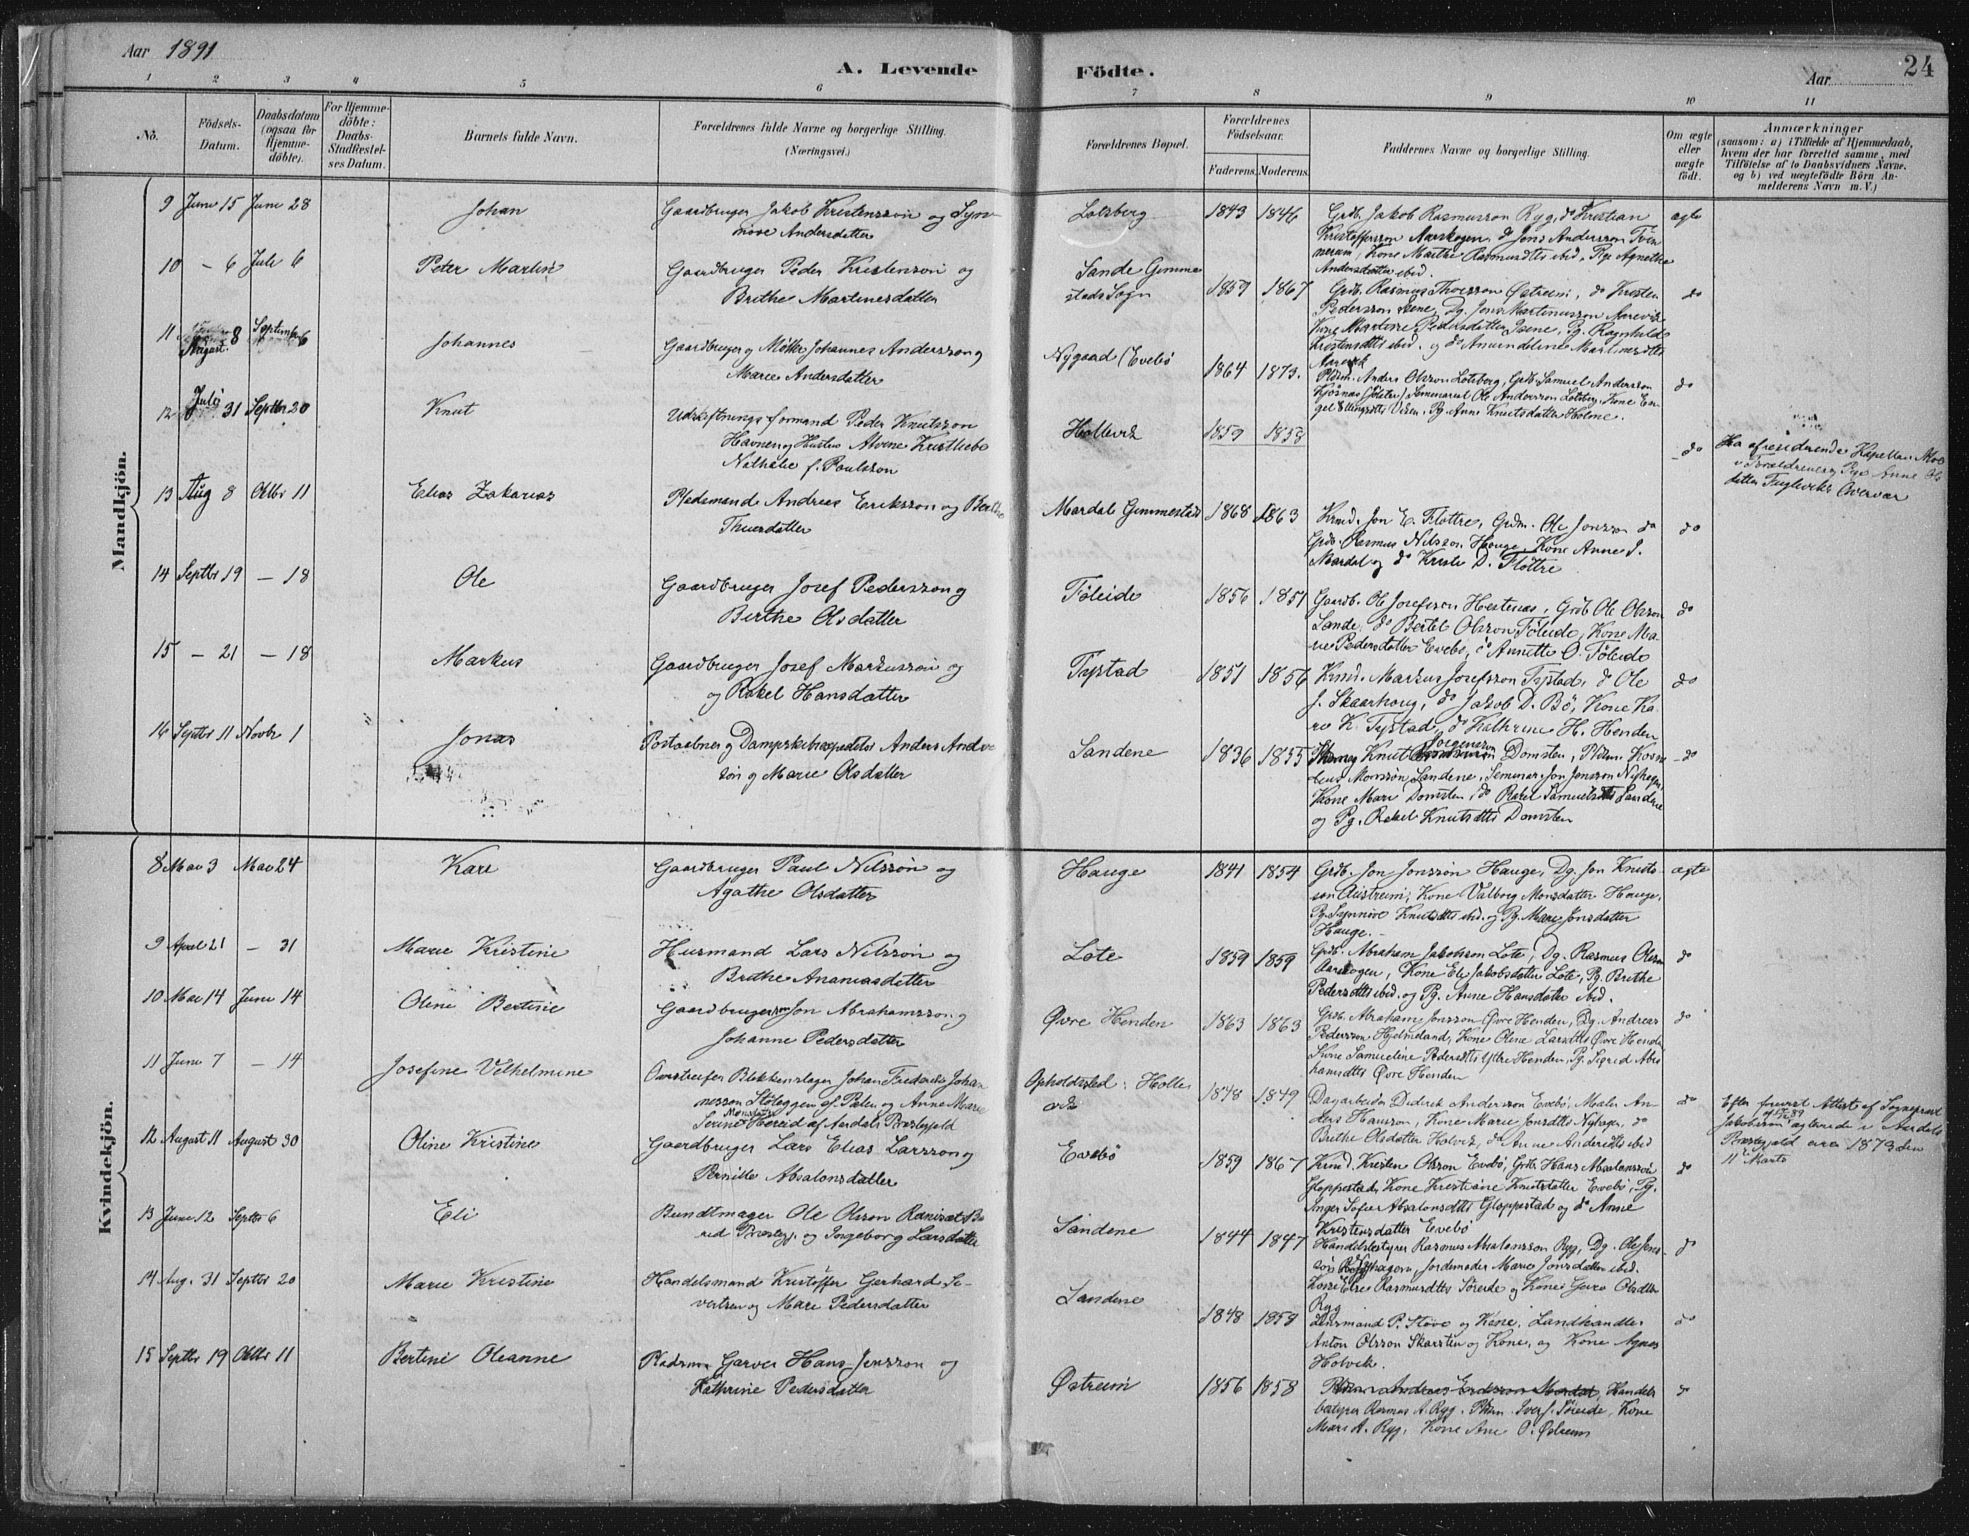 Aar 1891
A. Levende Födte.
Aar
24
1 2 3 4 5 6 7 8 9 10 11
No.
Födsels-
Datum.
Daabsdatum
(ogsaa for
Hjemme-
döbte).
For Hjemme-
döbte:
Daabs-
Stadfæstel-
ses Datum.
Barnets fulde Navn.
Forældrenes fulde Navne og borgerlige Stilling.
(Næringsvei.)
Forældrenes Bopæl.
Forældrenes
Födselsaar.
Faderens. Moderens.
Faddernes Navne og borgerlige Stilling.
Om ægte
eller
uægte
födt.
Anmærkninger
(saasom: a) i Tilfælde af Hjemmedaab,
hvem der har forrettet samme, med
Tilföielse af to Daabsvidners Navne,
og b) ved uægtefödte Börn An-
melderens Navn m. V.)
Mandkjön.
9 Juni 15 Juni 28 Johan
Gaardbruger Jakob Kristensson og Syn-
nøve Andersdatter
Lotsberg 1843 1846
Grdb. Jakob Rasmusson Ryg, do Kristian
Kristoffersson Aarskogen, do Jens Andersson
Kone Marthe Rasmusdtr ibid, Pge Agnethe
Andersdatter ibid.
ægte
10 - 6 Juli 6 Peter Martin
Gaardbruger Peder Kristensson og
Brithe Martinesdatter
Sande Gimme-
stads Sogn 1857 1867
Grdb. Rasmus Thorsson Østreim, do Kristen
Pedersson Isene, Dg. Jens Martinusson Aarevik
Kone Martine Pedersdatter Isene, Pg. Ragnhild
Kristensdtr ibid. og do Amundeline Martinesdtr
Aarevik
do
11 August 8 September 6 Johannes
Gaardbruger og Møller Johannes Andersson og
Marie Andersdatter
Nygaard (Evebø 1864 1873.
Pldsm. Anders Olsson Lotsberg, Grdb. Samuel Andersson
Kjøsnæs (Jølster) Seminarist Ole Andersson Lotsberg, Kone En-
gel Ellingsdtr Pg. Anne Knutsdatter Holme.
do
12 Juli 31 Septbr 20 Knut
Udskiftningsformand Peder Knutsson
Havnen og Hustru Alvine Kristliebe
Nathalie f. Poulsson
Hollevik 1859 1853
do
Ha af residerende Kapellan
i Forældrenes Pge Anne Ols-
datter Fuglevik Overvær
13 Aug 8 Oktbr 11 Elias Zakarias
Pladsmand Andreas Eriksson og Berthe
Thuesdatter
Mardal Gimmestad 1868 1863
Krmd. Jon E. Fløttre, Grdm. Ole Jonsson do
Grdb. Rasmus Nilsson Hauge, Kone Anne J.
Mardal og do Kristi D. Fløttre
do
14 Septbr 19 - 18 Ole
Gaardbruger Josef Pedersson og
Berthe Olsdatter
Føleide 1856 1851
Gaardb. Ole Josefsson Hestenæs, Grdb Ole Olsson
Sande, do Bertel Olsson Føleide, Kone Ma-
rie Pedersdatter Evebø, do Annette O. Føleide
do
15 - 21 - 18 Markus
Gaardbruger Josef Markusson og
og Rakel Hansdatter
Tystad 1851 1856
Krmd. Markus Josefsson Tystad, do Ole
J. Skaarhoug, do Jakob D. Bø, Kone Ka-
ri K. Tystad, do Kathrine H. Henden
do
16 Septbr 11 Novbr 1 Jonas
Postaabner og Dampskibsexpeditør Anders Andre-
søn og Marie Olsdatter
Sandene 1836 1855
Knut Domsten, Pldm.
Monsson Sandene, Seminar. Jon Jonsson Nyhagen,
Kone Mari Domsten, do Rakel Samuelsdtr Sandene
og Pg. Rakel Knutsdtr Domsten
do
Kvindekjön.
8 Mai 3 Mai 24 Kari
Gaardbruger Paul Nilsson og
Agathe Olsdatter
Hauge 1841 1854
Grdb. Jon Jonsson Hauge, Dg. Jon Knuts-
son Austreim, Kone Valborg Monsdatter Hauge,
Pg. Synnøve Knutsdtr ibid. og Pg. Mari Jonsdatter
Hauge.
ægte
9 April 21 - 31 Marie Kristine
Husmand Lars Nilsson og
Brithe Ananiasdatter
Lote 1859 1859
Grdb. Abraham Jakobson Lote, Dg. Rasmus Olsson
Aarskogen, Kone Eli Jakobsdatter Lote, Pg. Brithe
Pedersdtr ibid. og Pg. Anne Hansdatter ibid.
do
10 Mai 14 Juni 14 Oline Bertine
Gaardbruger Jon Abrahamsson og
Johanne Pedersdatter
Øvre Henden 1863 1863
Grdb. Abraham Jonsson Øvre Henden, Dg. Andreas
Pedersson Hjelmeland, Kone Oline Larsdtr Øvre Henden
Kone Samueline Pedersdtr Ytre Henden, Pg. Sigrid Abra-
hamsdtr Øvre Henden
do
11 Juni 7 - 14 Josefine Vilhelmine
Omstreifer Blikkenslager Johan Frederik Johan-
nesson Støleggen af Pælen og Anne Marie
Serine Monsdatter af Aardals Præstegjeld
Opholdssted: Holle-
vik 1848 1849
Dagarbeider Didrik Andersson Evebø, Maler An-
ders Hansson, Kone Marie Jonsdtr Nyhagen, do
Brithe Olsdatter Holvik, do Anne Andersdtr ibid
do
Efter forevist Attest af Sognepræst
Jakobsson af 89 i Aardals
Præstegjeld 1873 den
11 Marts
12 August 11 August 30 Oline Kristine
Gaardbruger Lars Elias Larsson og
Pernille Absalonsdatter
Evebø 1859 1867
Krmd. Kristen Olsson Evebø, Grdb. Hans Absalonsson
Gloppestad, Kone Kristiane Knutsdatter Evebø, Pg.
Inger Sofie Absalonsdtr Gloppestad og do Anne
Kristensdatter Evebø
do
13 Juni 12 Septbr 6 Eli
Bundtmager Ole Olsson
Præstegj. og Ingeborg Larsdatter
Sandene 1844 1847
Handelsbestyrer Rasmus Absalonsson Ryg, Dg. Ole Jons-
son Nyhagen, Jordemoder Marie Jonsdatter ibid.
Kone Else Rasmusdtr Søreide og Kone Olsdtr
Ryg
do
14 Aug. 31 Septbr 20 Marie Kristine
Handelsmand Kristoffer Gerhard Si-
vertsen og Mari Pedersdatter
Sandene 1848 1858
Lensmand P. Støve og Kone, Landhandler
Anton Olsson Skarsten og Kone, og Kone Agnes
Holvik.
do
15 Septbr 19 Oktbr 11 Bertine Oleanne
Pladsm Garver Hans Jensson og
Kathrine Pedersdatter
Østreim 1856 1858
Pldsm Andreas Eriksson Mardal, Handels-
bestyrer Rasmus A. Ryg, Pldsm Iver J. Søreide, Kone
Mari A. Ryg, Kone Ane O. Østreim
do